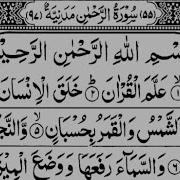 (۵۵) سُوْرَةُ الرَّحْمٰنِ مَدَنِيَّةٌ (۹۷)
سْمِ اللّٰهِ الرَّحْمٰنِ الرَّحِيْمِ
عَلَّمَ الْقُرْاٰنَ ۲ خَلَقَ الْاِنْسَانَ
لشَّمْسُ وَالْقَمَرُ بِحُسْبَانٍ ۵ وَّالنَّجْ
۶ وَالسَّمَآءَ رَفَعَهَا وَوَضَعَ الْمِيْزَ